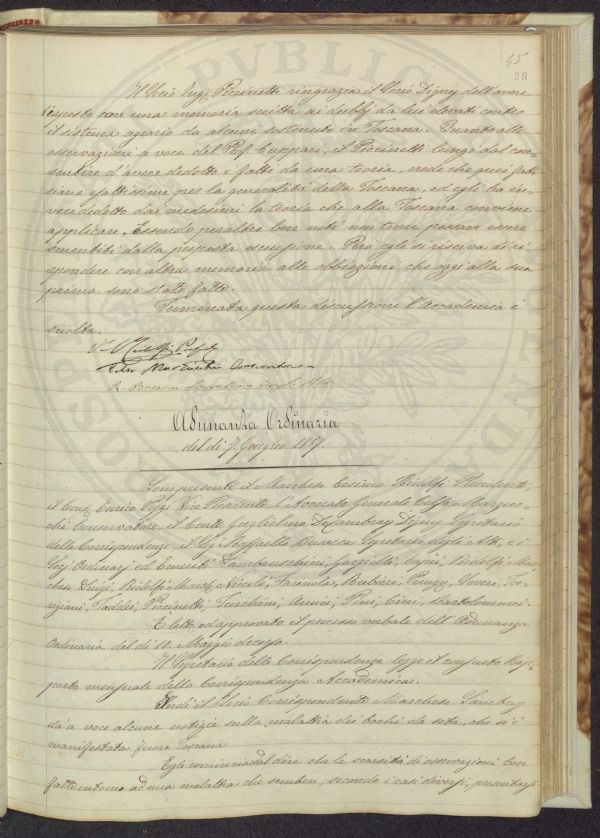 45
28
Il Socio Ing. Piccinetti ringrazia il Socio Digny dell'avere
risposto con una memoria scritta ai dubbj da lui elevati contro
il sistema agrario da alcuni sostenuto in Toscana. Quanto alle
osservazioni a voce del Prof. Cuppari, il Piccinetti lungi dal con-
sentire d'avere dedotto i fatti da una teoria, crede che quei fatti
siano esattissimi per la generalità della Toscana, ed egli ha in-
vece dedotto dai medesimi la teoria che alla Toscana conviene
applicare. Essendo peraltro ben noti non teme possano essere
smentiti dalla proposta escussione. Però egli si riserva di ri-
spondere con altra memoria alle obbiezioni, che oggi alla sua
prima sono state fatte.
Terminata questa discussione l'Accademia è
sciolta.
V. C. Ridolfi
R. Busacca Segretario degli Atti
Adunanza Ordinaria
del dì 7. Giugno 1857.
Son presenti il Marchese Cosimo Ridolfi Presidente,
il Cav. Enrico Poggi Vice Presidente, l'Avvocato Generale Celso Marzuc-
chi Conservatore, il Conte Guglielmo De Cambray Digny Segretario
delle Corrispondenze, il Raffaello Busacca Segretario degli Atti, e i
Socj Ordinarj ed Emeriti Lambruschini, Capei, Ridolfi Mar-
chese Luigi, Ridolfi March. Niccolò, Farinola, Peruzzi, Tor-
rigiani, Taddei, Piccinetti, Turchini, Pini, Cini, Bartolommei.
È letto ed approvato il processo verbale dell'Adunanza
Ordinaria del dì 10. Maggio decorso.
Il Segretario delle Corrispondenze legge il consueto Rap-
porto mensuale della Corrispondenza Accademica.
Indi il Socio Corrispondente Marchese
dà a voce alcune notizie sulla malattia dei bachi da seta, che si è
manifestata fuori Toscana
Egli comincia dal dire che la scarsità di osservazioni ben
fatte intorno ad una malattia che sembra, secondo i casi diversi, presentarsi